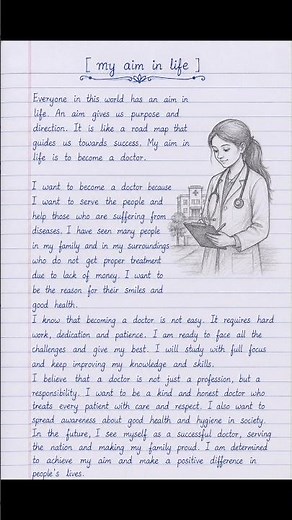 [ my aim in life ]
Everyone in this world has an aim in
life. An aim gives us purpose and
direction. It is like a road map that
guides us towards success. My aim in
life is to become a doctor.
I want to become a doctor because
I want to serve the people and
help those who are suffering from
diseases. I have seen many people
in my family and in my surroundings
who do not get proper treatment
due to lack of money. I want to
be the reason for their smiles and
good health.
I know that becoming a doctor is not easy. It requires hard
work, dedication and patience. I am ready to face all the
challenges and give my best. I will study with full focus
and keep improving my knowledge and skills.
I believe that a doctor is not just a profession, but a
responsibility. I want to be a kind and honest doctor who
treats every patient with care and respect. I also want to
spread awareness about good health and hygiene in society.
In the future, I see myself as a successful doctor, serving
the nation and making my family proud. I am determined
to achieve my aim and make a positive difference in
people's lives.